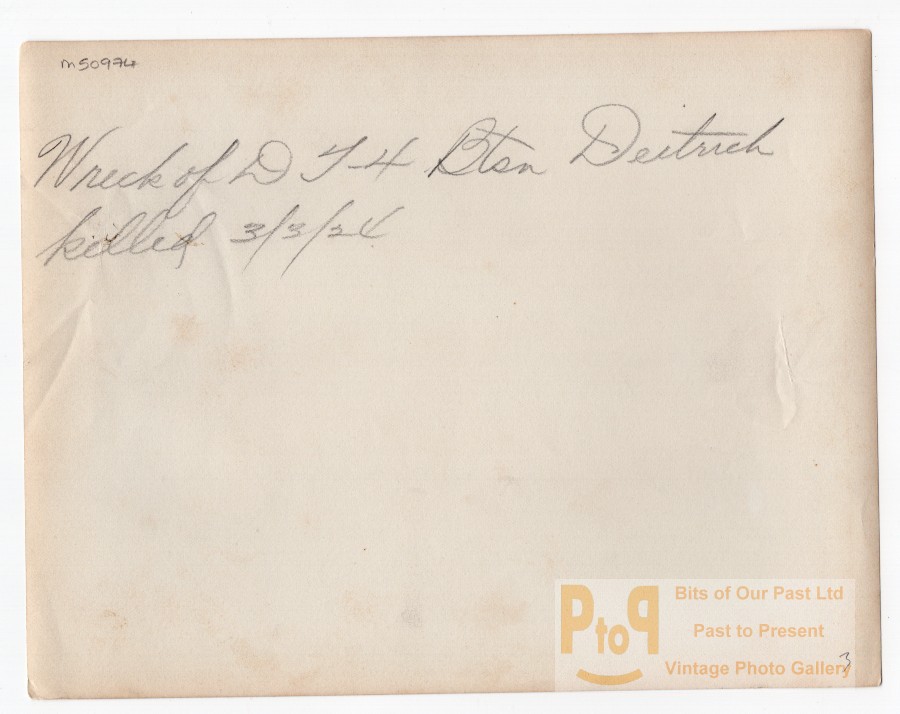 m50974
Wreck of D T-4 Btsn Deitrich
killed 3/3/24
PtoP
Bits of Our Past Ltd
Past to Present
Vintage Photo Gallery
3